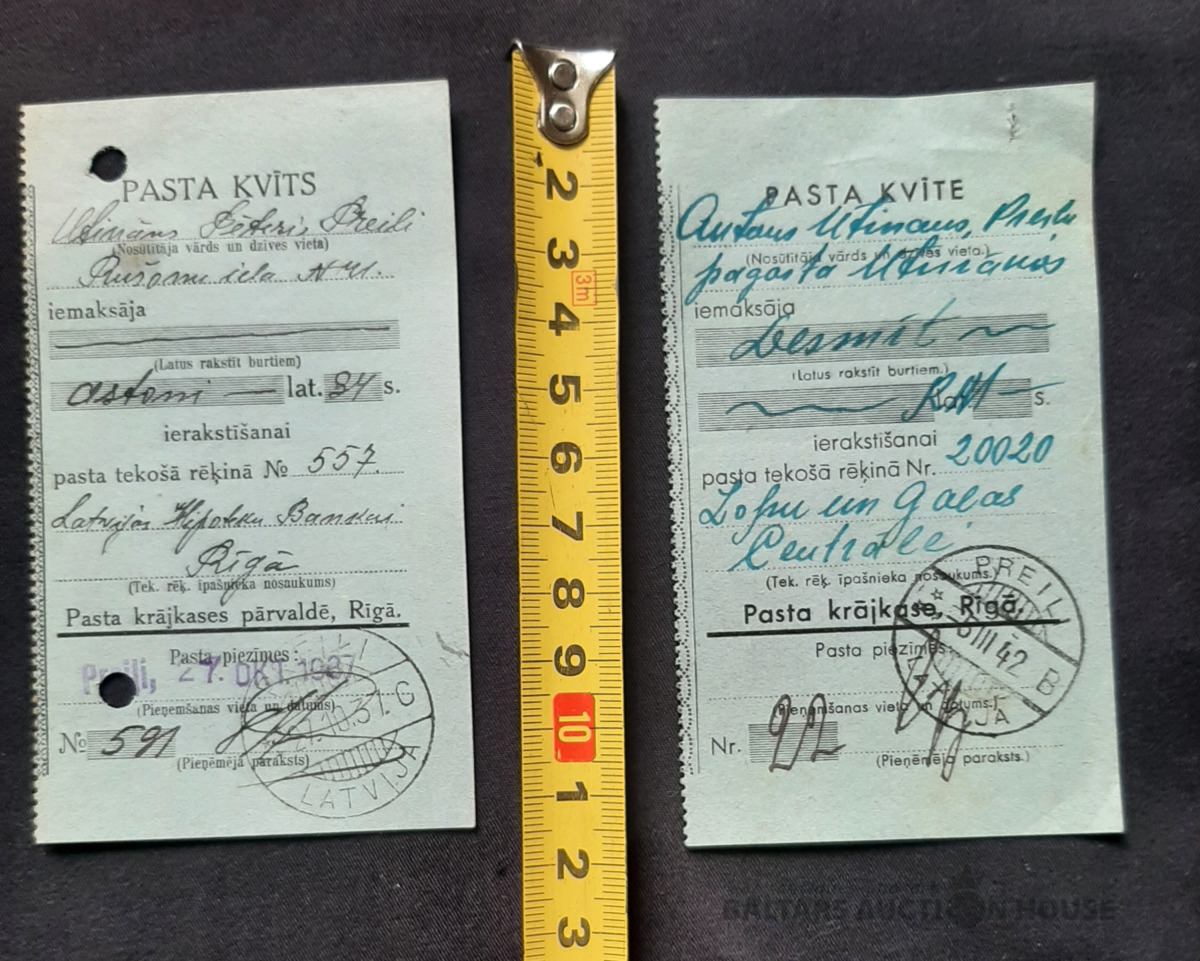 PASTA KVĪTS
Utināns Pēteris Preiļi
(Nosūtītāja vārds un dzīves vieta)
Rušonu iela № 41.
iemaksāja
(Latus rakstīt burtiem)
astoņi — lat. 84 s.
ierakstīšanai
pasta tekošā rēķinā № 557.
Latvijas Hipoteku Bankai
Rīgā
(Tek. rēķ. īpašnieka nosaukums)
Pasta krājkases pārvaldē, Rīgā.
Pasta piezīmes:
Preiļi, 27. OKT. 1937
(Pieņemšanas vieta un datums)
№ 591
(Pieņēmēja paraksts)
27.10.37. G
LATVIJA
2
3
3m
4
5
6
7
8
9
10
1
2
3
PASTA KVĪTE
Antans Utinans, Preiļu
(Nosūtītāja vārds un dzīves vieta.)
pagasta Utinānos
iemaksāja
Desmit
(Latus rakstīt burtiem.)
s.
ierakstīšanai
pasta tekošā rēķinā Nr. 20020
Lopu un Gaļas
Centrāle
(Tek. rēķ. īpašnieka nosaukums.)
Pasta krājkase, Rīgā.
Pasta piezīmes:
(Pieņemšanas vieta un datums.)
Nr. 92
(Pieņēmēja paraksts.)
PREIĻI
III 42 B
LATVIJA
BALTARS AUCTION HOUSE